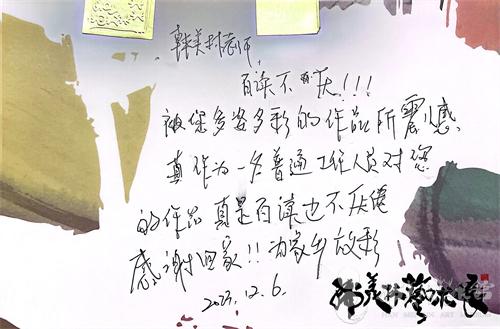 韩美林老师，
百读不厌！！！
被您多姿多彩的作品所震憾
真作为一名普通工作人员对您
的作品真是百读也不厌倦
感谢回家！！为家乡放彩
2023.12.6.
韩美林藝术展